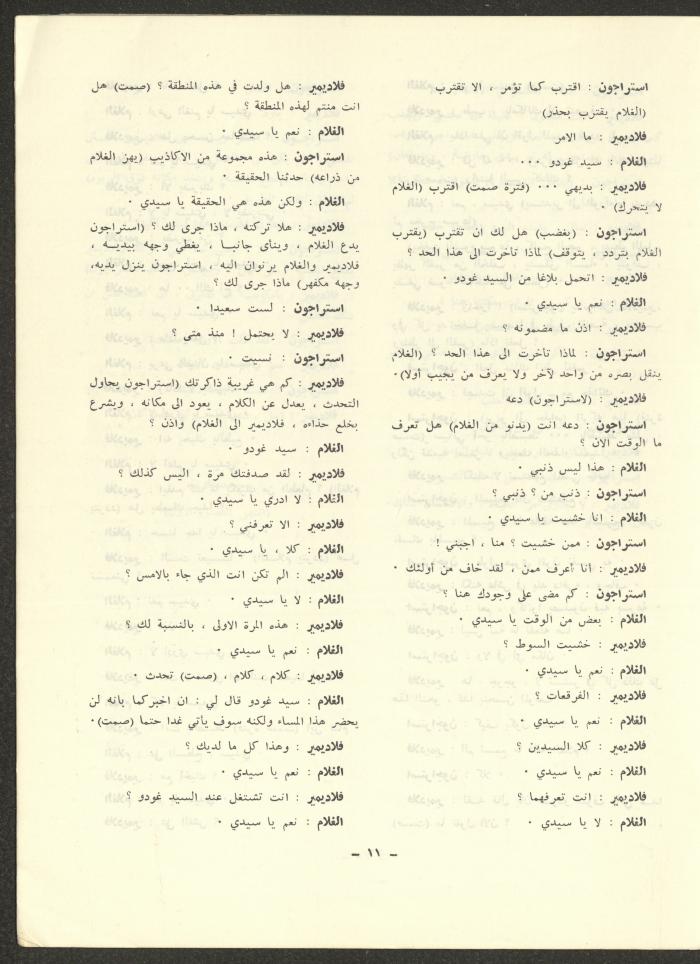 استراجون : اقترب كما تؤمر ، الا تقترب
(الغلام يقترب بحذر)
فلاديمير : ما الامر
الغلام : سيد غودو ٠٠٠
فلاديمير : بديهي ٠٠٠ (فترة صمت) اقترب (الغلام
لا يتحرك) ٠
استراجون : (بغضب) هل لك ان تقترب (يقترب
الغلام بتردد ، يتوقف) لماذا تأخرت الى هذا الحد ؟
فلاديمير : اتحمل بلاغا من السيد غودو ٠
الغلام : نعم يا سيدي ٠
فلاديمير : اذن ما مضمونه ؟
استراجون : لماذا تأخرت الى هذا الحد ؟ (الغلام
ينقل بصره من واحد لآخر ولا يعرف من يجيب أولا)٠
فلاديمير : (لاستراجون) دعه
استراجون : دعه انت (يدنو من الغلام) هل تعرف
ما الوقت الان ؟
الغلام : هذا ليس ذنبي ٠
استراجون : ذنب من ؟ ذنبي ؟
الغلام : انا خشيت يا سيدي ٠
استراجون : ممن خشيت ؟ منا ، اجبني !
فلاديمير : أنا أعرف ممن ، لقد خاف من أولئك ٠
استراجون : كم مضى على وجودك هنا ؟
الغلام : بعض من الوقت يا سيدي ٠
فلاديمير : خشيت السوط ؟
الغلام : نعم يا سيدي ٠
فلاديمير : الفرقعات ؟
الغلام : نعم يا سيدي ٠
فلاديمير : كلا السيدين ؟
الغلام : نعم يا سيدي ٠
فلاديمير : انت تعرفهما ؟
الغلام : لا يا سيدي ٠
فلاديمير : هل ولدت في هذه المنطقة ؟ (صمت) هل
انت منتم لهذه المنطقة ؟
الغلام : نعم يا سيدي ٠
استراجون : هذه مجموعة من الاكاذيب (يهز الغلام
من ذراعه) حدثنا الحقيقة ٠
الغلام : ولكن هذه هي الحقيقة يا سيدي ٠
فلاديمير : هلا تركته ، ماذا جرى لك ؟ (استراجون
يدع الغلام ، وينأى جانبا ، يغطي وجهه بيديه ،
فلاديمير والغلام يرنوان اليه ، استراجون ينزل يديه،
وجهه مكفهر) ماذا جرى لك ؟
استراجون : لست سعيدا ٠
فلاديمير : لا يحتمل ! منذ متى ؟
استراجون : نسيت ٠
فلاديمير : كم هي غريبة ذاكرتك (استراجون يحاول
التحدث ، يعدل عن الكلام ، يعود الى مكانه ، ويشرع
بخلع حذاءه ، فلاديمير الى الغلام) واذن ؟
الغلام : سيد غودو ٠
فلاديمير : لقد صدفتك مرة ، اليس كذلك ؟
الغلام : لا ادري يا سيدي ٠
فلاديمير : الا تعرفني ؟
الغلام : كلا ، يا سيدي ٠
فلاديمير : الم تكن انت الذي جاء بالامس ؟
الغلام : لا يا سيدي ٠
فلاديمير : هذه المرة الاولى ، بالنسبة لك ؟
الغلام : نعم يا سيدي ٠
فلاديمير : كلام ، كلام ، (صمت) تحدث ٠
الغلام : سيد غودو قال لي : ان اخبركما بانه لن
يحضر هذا المساء ولكنه سوف يأتي غدا حتما (صمت)٠
فلاديمير : وهذا كل ما لديك ؟
الغلام : نعم يا سيدي ٠
فلاديمير : انت تشتغل عند السيد غودو ؟
الغلام : نعم يا سيدي ٠
– ١١ –